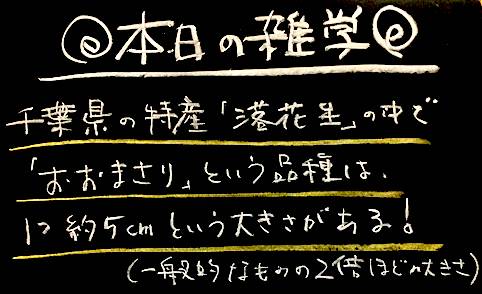 本日の雑学
千葉県の特産「落花生」の中で
「おおまさり」という品種は、
1つ約5cmという大きさがある!
(一般的なものの2倍ほどの大きさ)